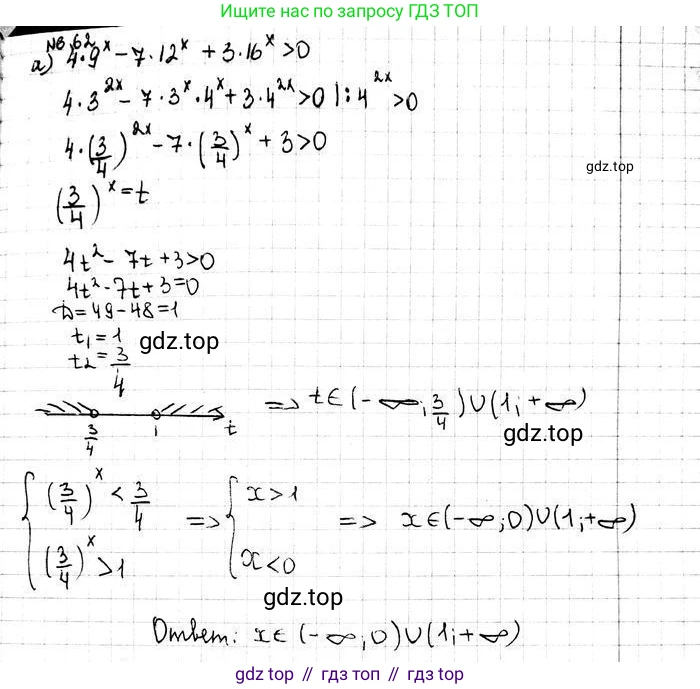 Больше решебников по запросу ГДЗ ТОП
№6.62
а) 4·9^x − 7·12^x + 3·16^x > 0
4·3^{2x} − 7·3^x·4^x + 3·4^{2x} > 0 | : 4^{2x} > 0
4·(3/4)^{2x} − 7·(3/4)^x + 3 > 0
gdz.top
(3/4)^x = t
4t² − 7t + 3 > 0
4t² − 7t + 3 = 0
D = 49 − 48 = 1
t₁ = 1
t₂ = 3/4
gdz.top
3/4 1 t => t ∈ (−∞; 3/4) ∪ (1; +∞)
gdz.top
{ (3/4)^x < 3/4 => { x > 1 => x ∈ (−∞; 0) ∪ (1; +∞)
(3/4)^x > 1 x < 0
gdz.top
Ответ: x ∈ (−∞; 0) ∪ (1; +∞)
gdz top // гдз топ // гдз.top